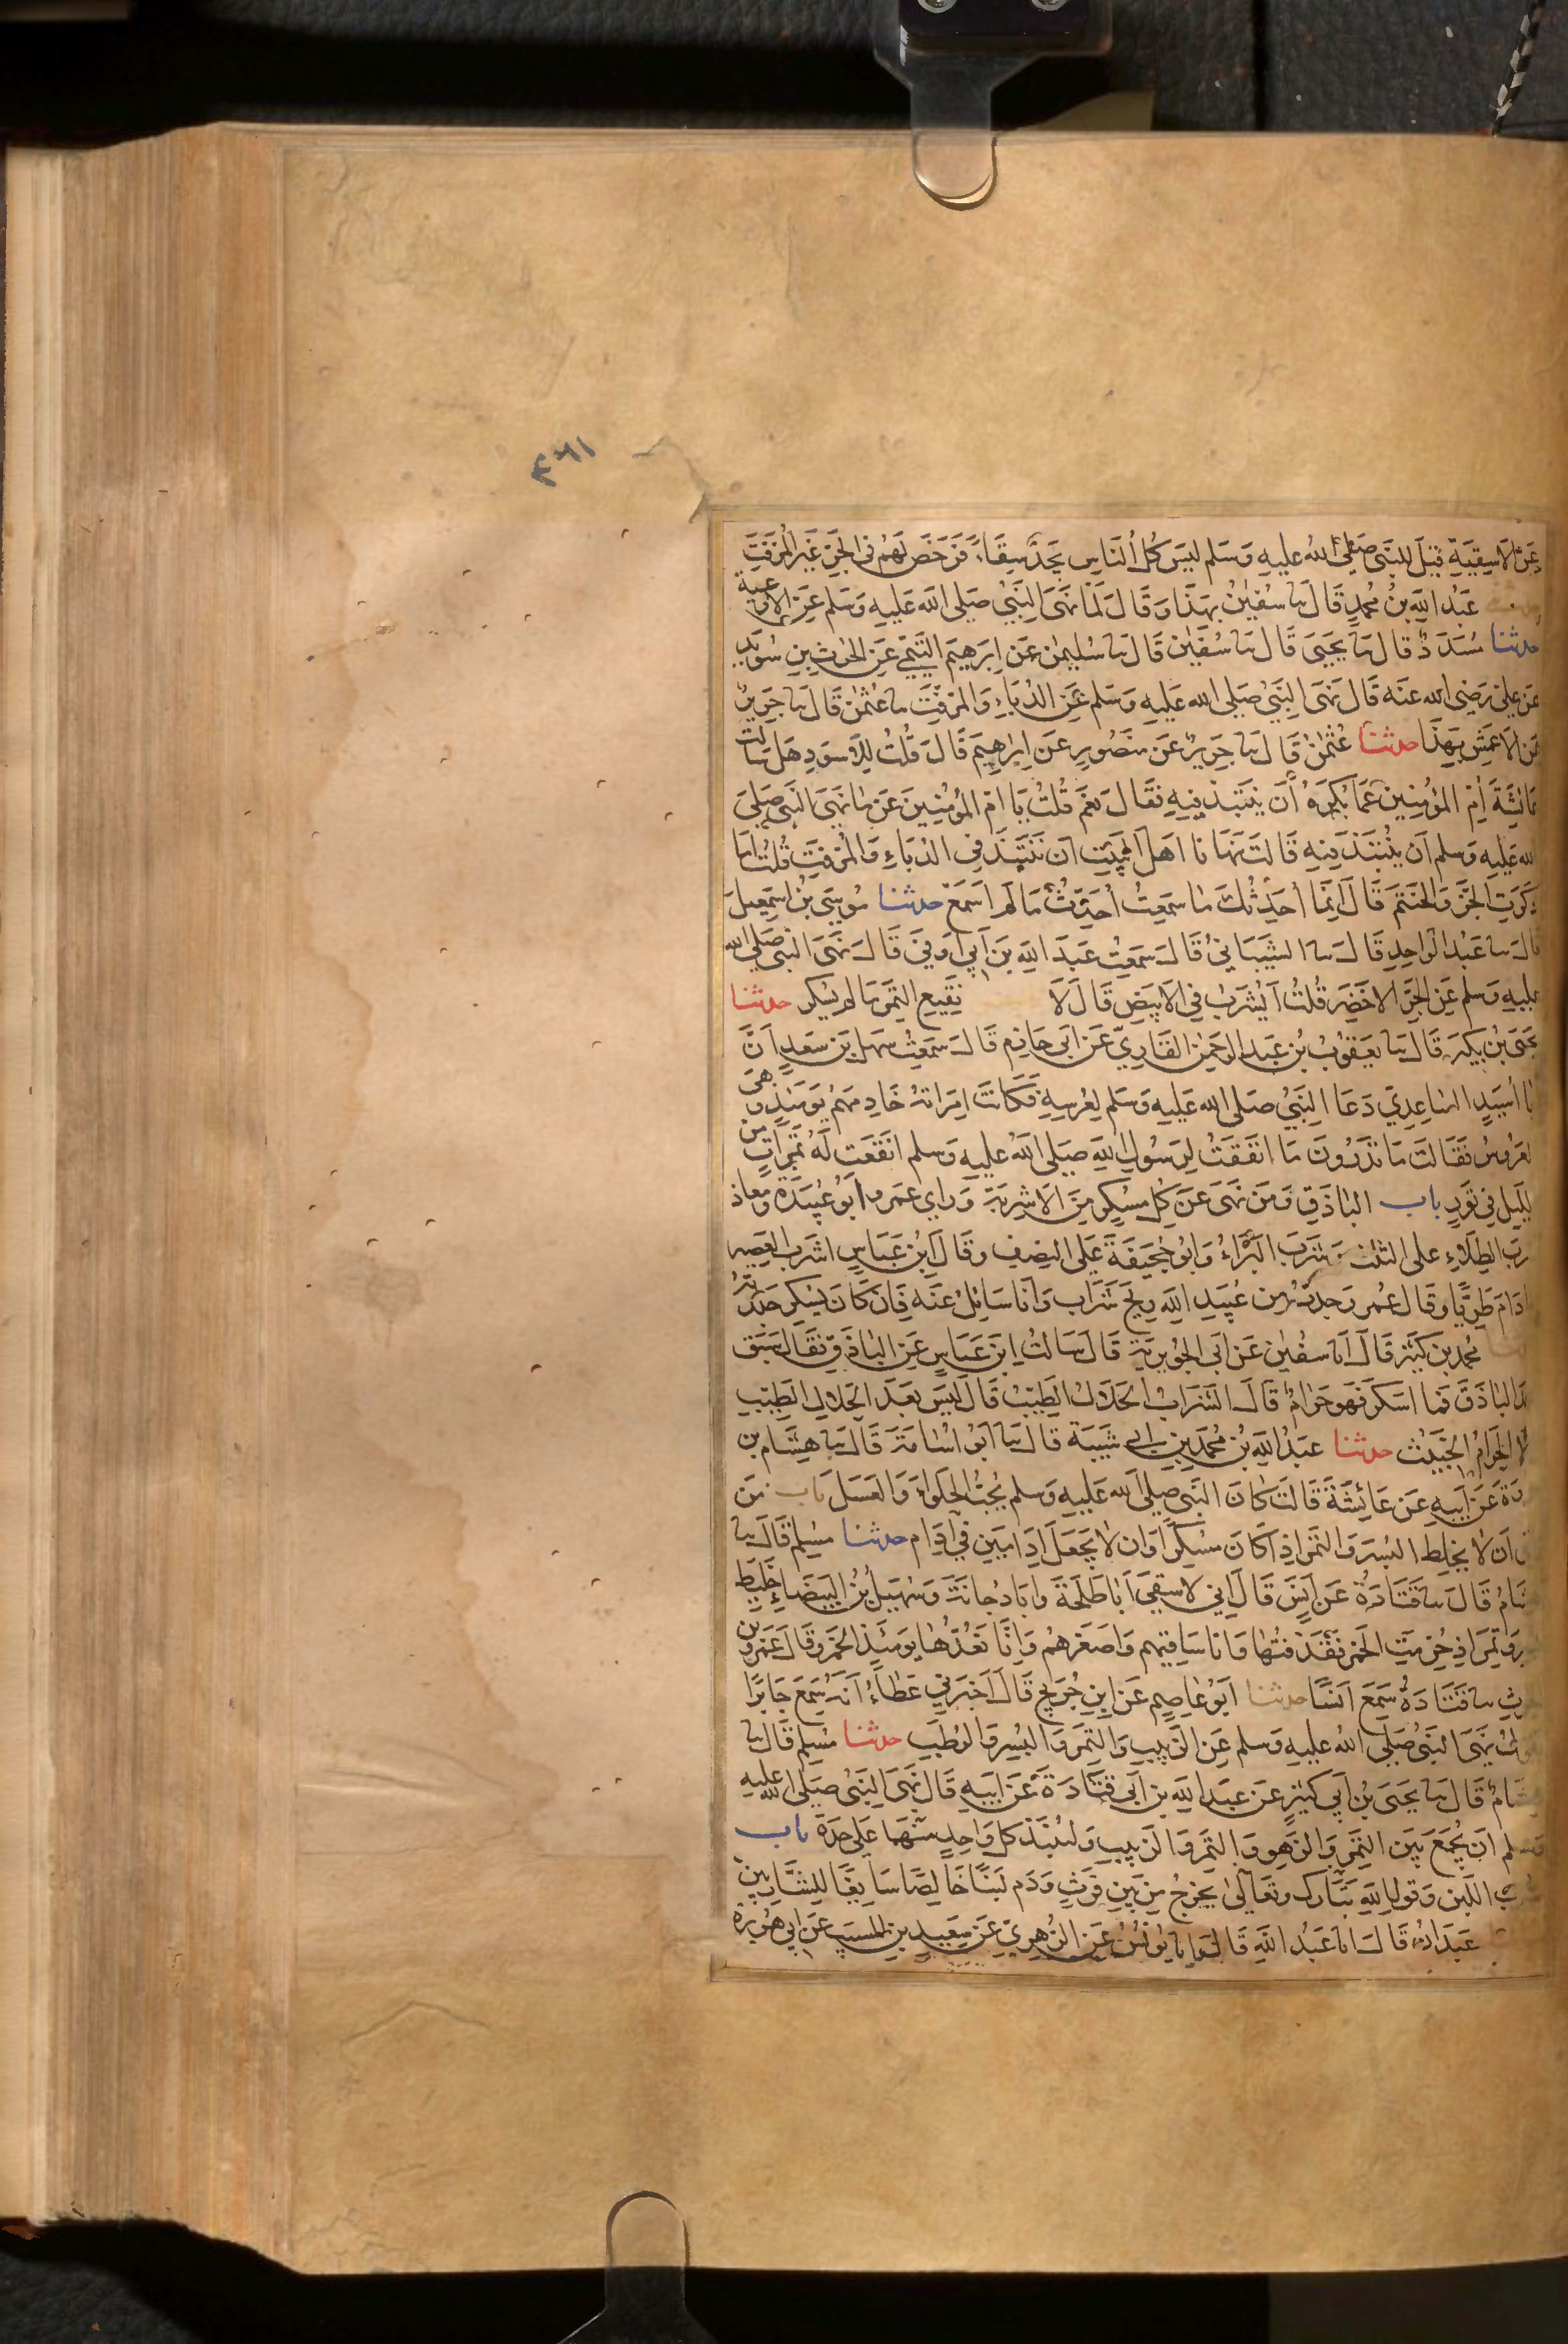 ٤٦١
عَن الاسقِيَةِ قيلَ للنبى صَلى اللهُ عليهِ وَسَلم ليسَ كُل الناسِ يَجدُ سِقَاءً فَرَخصَ لهم فى الجرِّ غيرِ المُزفَتِ
عَبدُ اللهِ بنُ محمدٍ قال نا سُفينُ بهذا وَقَالَ لَما نهَى النبيُ صَلى الله عَليهِ وسَلم عَن الاوعية
حدثنا مسَددٌ قال نا يحيَى قالَ نا سُفين قال نا سُليمن عَن ابرهِيمَ التيمى عن الحرثِ بنِ سُويد
عَن علىٍ رَضِى الله عنه قَال نَهى النبيُ صَلى الله عَليهِ وَسَلم عَن الدبّاءِ وَالمزفتِ نا عثمٰن قَالَ نا جَريرٌ
عَن الاعمَشِ بهَذا حدثنا عُثمٰن قَالَ نا جَريرٌ عَن منصُورٍ عَن ابراهِيمَ قَالَ قُلتُ للاسودِ هَل سالت
عَائشَةَ اُم المؤمِنين عَما يُكرَهُ أن ينتبذ فِيهِ فقال نعَم قُلتُ يَا ام المؤمِنينَ عَن ما نهى النبى صَلى
الله عَليهِ وسلم أن ينتبذ فيه قالت نهَانا اهل البيتِ ان ننتبذَ فى الدباءِ وَالمزفت قُلتُ اما
ذكرَتِ الجرَّ وَالحنتمَ قَالَ انما أحَدثكَ ما سمعتُ أُحدثُ مَا لم اَسمَع حدثنا مُوسَى بنُ اسمعِيلَ
قالَ نا عَبدُ الواحِدِ قَالَ نا الشيبَانىُ قَالَ سَمعتُ عَبدَ اللهِ بنَ اَبى اَوفى قَالَ نَهَى النبى صَلى الله
عليهِ وَسلم عَن الجرِّ الاخضَرِ قُلتُ اَيُشرَبُ فى الابيَضِ قَالَ لَا نَقِيع التَّمرِ مَا لم يُسكر حدثنا
يحَيى بن بكيرٍ قَالَ نا يعقوبُ بنُ عَبدِ الرحمٰن القَارِىّ عَن ابى حَازِم قَالَ سَمعتُ سهلَ بنَ سَعدٍ اَنَّ
أبا اُسَيدٍ السَّاعِدِىَّ دَعَا النَّبىَّ صَلى الله عَليهِ وَسَلم لِعُرسِهِ فكانت امرَاتهُ خَادِمَهم يَومَئذٍ وهى
العَرُوسُ فقَالت مَا تدرُونَ مَا انقَعَتُ لِرسُولِ الله صَلى اللهُ عليهِ وَسلم انقَعَت لَهُ تمرَاتٍ من
الليلِ فى تَورٍ باب البَاذَقِ وَمَن نَهَى عَن كل مُسكِرٍ مِنَ الاشرِبَةِ وَرَاى عُمَر وَابُو عُبيدَةَ ومعاذ
شربَ الطِلاءِ على الثلث وَشَرِبَ البَراءُ وَابُو جُحَيفَةَ عَلى النصفِ وقالَ ابنُ عَبَاسٍ اشرَب العَصيرَ
مادَامَ طريًّا وقالَ عُمر وَجدتُ من عُبيدِ اللهِ ريحَ شَرَاب وَانا سَائلٌ عنهُ فَان كانَ يُسكر جلدته
محمد بن كثيرٍ قالَ انا سفين عَن ابى الجُويريَةِ قَالَ سَالتُ ابن عَباسٍ عَن البَاذَقِ فقال سَبق
محمد البَاذَقَ فما اسكرَ فهو حَرَامٌ قَالَ الشرَابُ الحَلالُ الطيبُ قال ليسَ بَعدَ الحلالِ الطيبِ
الا الحَرامُ الخبيثُ حدثنا عبدُ اللهِ بنُ محمد بن ابى شيبَة قالَ نا ابُو اُسَامَةَ قَالَ نا هشام بن
عروةَ عَن ابيهِ عن عَائِشَةَ قالت كانَ النبى صَلى الله عليهِ وسلم يُحبُ الحَلوَاءَ وَالعَسَل باب مَن
رَاى اَن لا يخلِط البُسرَ وَالتمرَ اذا كَانَ مسكِرًا وَان لا يجعَلَ اِدَامَين فى اِدَام حدثنا مُسلم قال نا
هشَامُ قَال نا قتَادَةُ عَن انسٍ قَالَ انى لاسقِى اَبا طَلحَةَ وابَا دُجَانَةَ وَسُهيلَ بنَ البَيضَاءِ خَليطَ
بسرٍ وتمرٍ اذ حُرّمتِ الخمرُ فَقَذَفتُها وَانا سَاقيهم وَاصغرهُم وَانَّا نَعُدُّها يومَئذٍ الخمرَ وقالَ عمرو بن
الحرثِ نا قتَادَةُ سَمعَ انسًا حدثنا ابُو عَاصِمٍ عَن ابنِ جُريجٍ قَالَ اَخبَرنى عَطاءٌ انه سَمعَ جابرًا
يقولُ نهى النبىُّ صَلى اللهُ عليهِ وسلم عَن الزبيبِ وَالتمرِ وَالبُسرِ والرُطَب حدثنا مُسلِم قَالَ نا
هشامٌ قَالَ نا يحَيى بنُ ابى كثيرٍ عَن عَبدِ اللهِ بن ابى قتَادَةَ عَن ابيهِ قَالَ نهَى النبىُّ صلى الله عليه
وسلم ان يُجمَعَ بَين التمرِ وَالزهوِ وَالتمرِ وَالزبيبِ ولينبَذ كل وَاحدٍ منهُما عَلى حِدَة باب
شربِ اللبنِ وَقولِ اللهِ تبَارك وتعَالى يخرجُ مِن بَينِ فَرثٍ ودَمٍ لبنًا خَالصًا سَايغًا للشَّاربينَ
عَبدَانُ قَالَ انا عَبدُ اللهِ قَالَ انا يُونُسُ عَن الزُهرِىّ عَن سعِيدِ بن المسيب عن ابى هُريرة